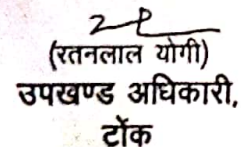 (रतनलाल योगी)
उपखण्ड अधिकारी,
टोंक